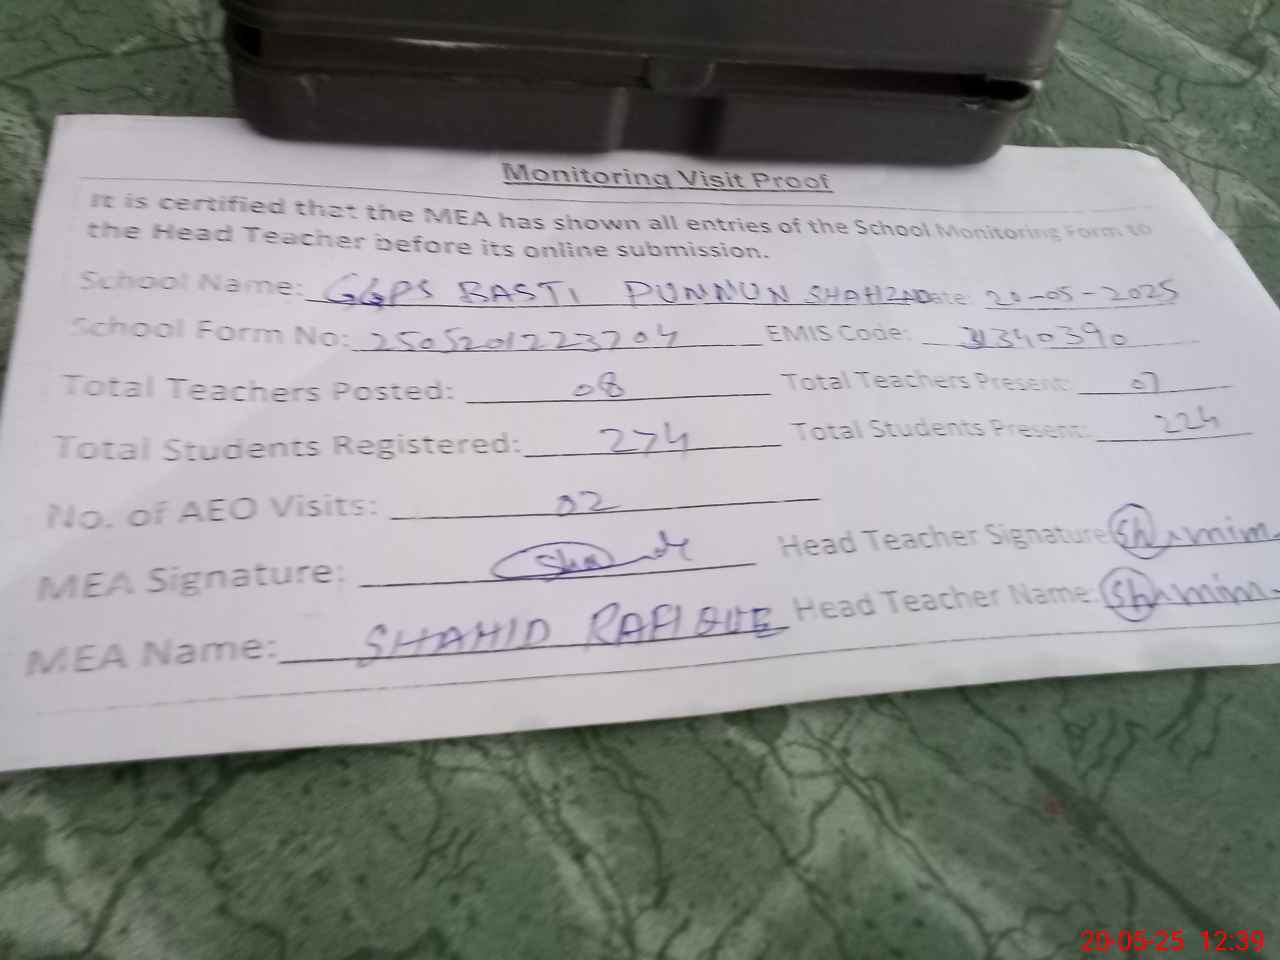 Monitoring Visit Proof
It is certified that the MEA has shown all entries of the School Monitoring Form to
the Head Teacher before its online submission.
School Name: GGPS BASTI PUNNUN Date: 20-05-2025
School Form No: 2505201223704 EMIS Code:
Total Teachers Posted: 08 Total Teachers Present: 07
Total Students Registered: 274 Total Students Present: 224
No. of AEO Visits: 02
MEA Signature: Head Teacher Signature: Shamim
MEA Name: SHAHID RAFIQUE Head Teacher Name: Shamim
20-05-25 12:39